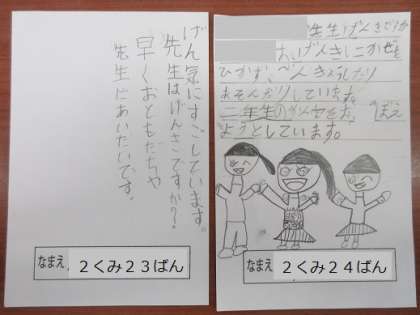 げん気にすごしています。
先生はげんきですか?
早くおともだちや
先生にあいたいです。
なまえ 2くみ23ばん
先生げんきですか
は、げんきにかぜも
ひかず、べんきょうしたり
あそんだりしています。
二年生のかん字を、おぼえ
ようとしています。
なまえ 2くみ24ばん